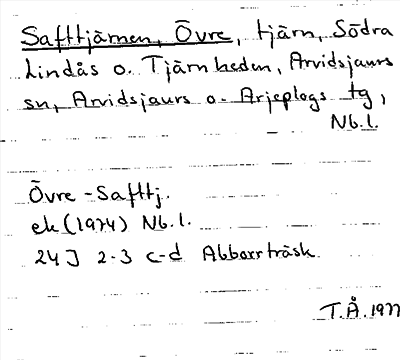 Safttjärnen, Övre, tjärn, Södra
Lindås o. Tjärnheden, Arvidsjaurs
sn, Arvidsjaurs o. Arjeplogs tg,
Nb.l.
Övre-Safttj.
ek (1974) Nb.l.
24J 2-3 c-d Abborrträsk.
T.Å. 1977